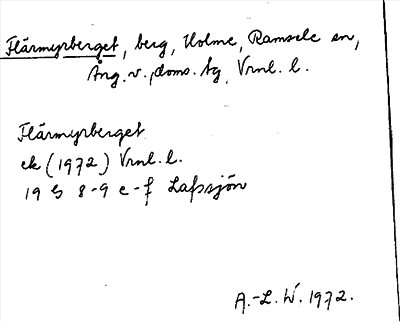 Flärmyrberget, berg, Holme, Ramsele sn,
Ång. v. doms. tg, Vrnl. l.
Flärmyrberget
ek (1972) Vrnl. l.
19 G 8-9 e-f Lafssjön
A.-L. W. 1972.